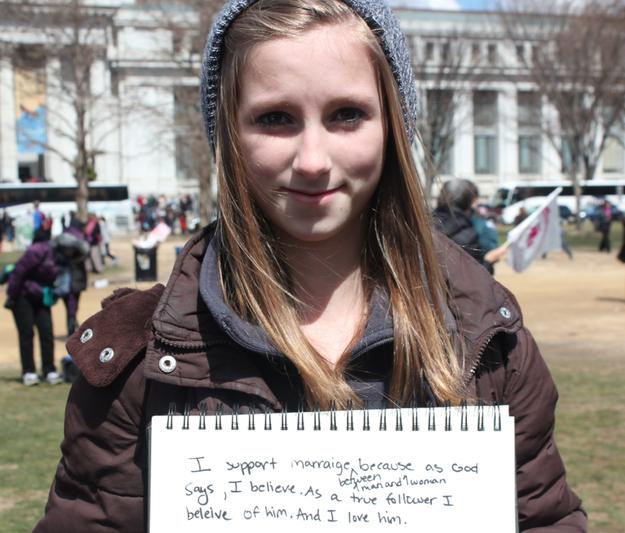 I support marraige, because as God
between 1 man and 1 woman
says, I believe. As a true follower I
beleive of him. And I love him.